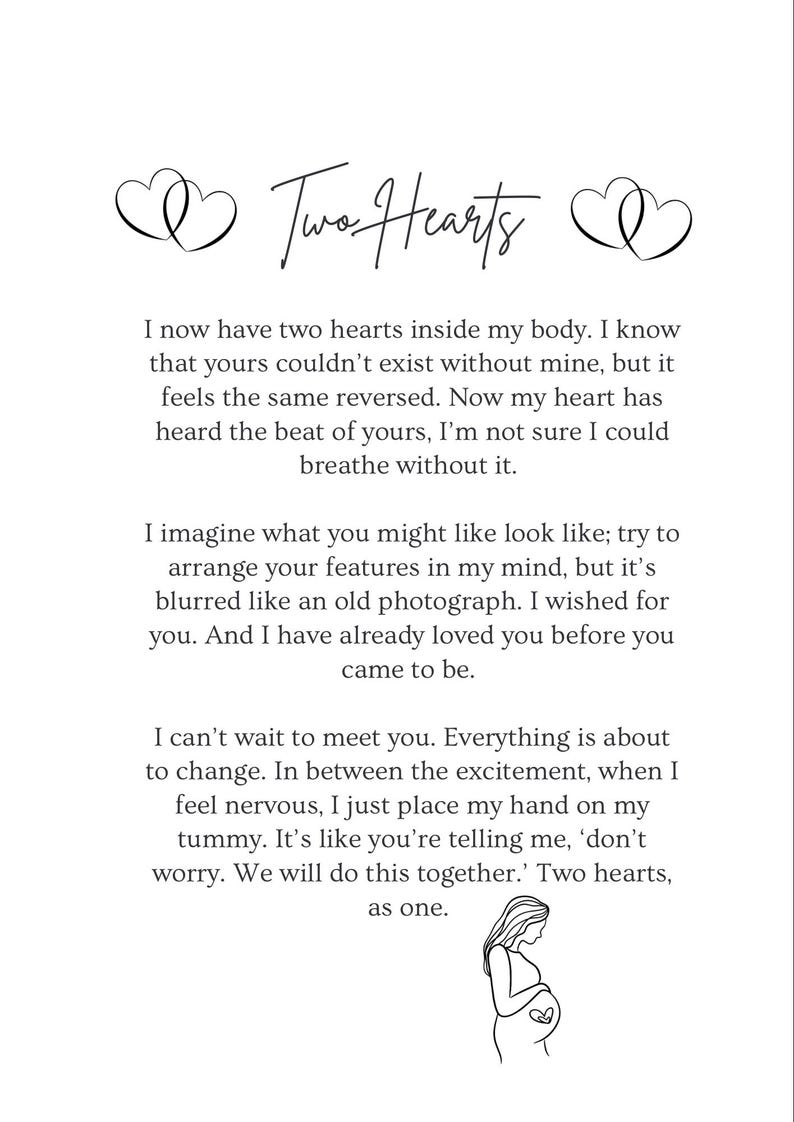 Two Hearts
I now have two hearts inside my body. I know
that yours couldn’t exist without mine, but it
feels the same reversed. Now my heart has
heard the beat of yours, I’m not sure I could
breathe without it.
I imagine what you might like look like; try to
arrange your features in my mind, but it’s
blurred like an old photograph. I wished for
you. And I have already loved you before you
came to be.
I can’t wait to meet you. Everything is about
to change. In between the excitement, when I
feel nervous, I just place my hand on my
tummy. It’s like you’re telling me, ‘don’t
worry. We will do this together.’ Two hearts,
as one.